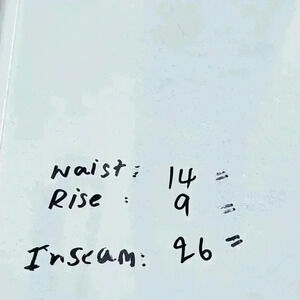 Waist: 14"
Rise : 9"
Inseam: 26"